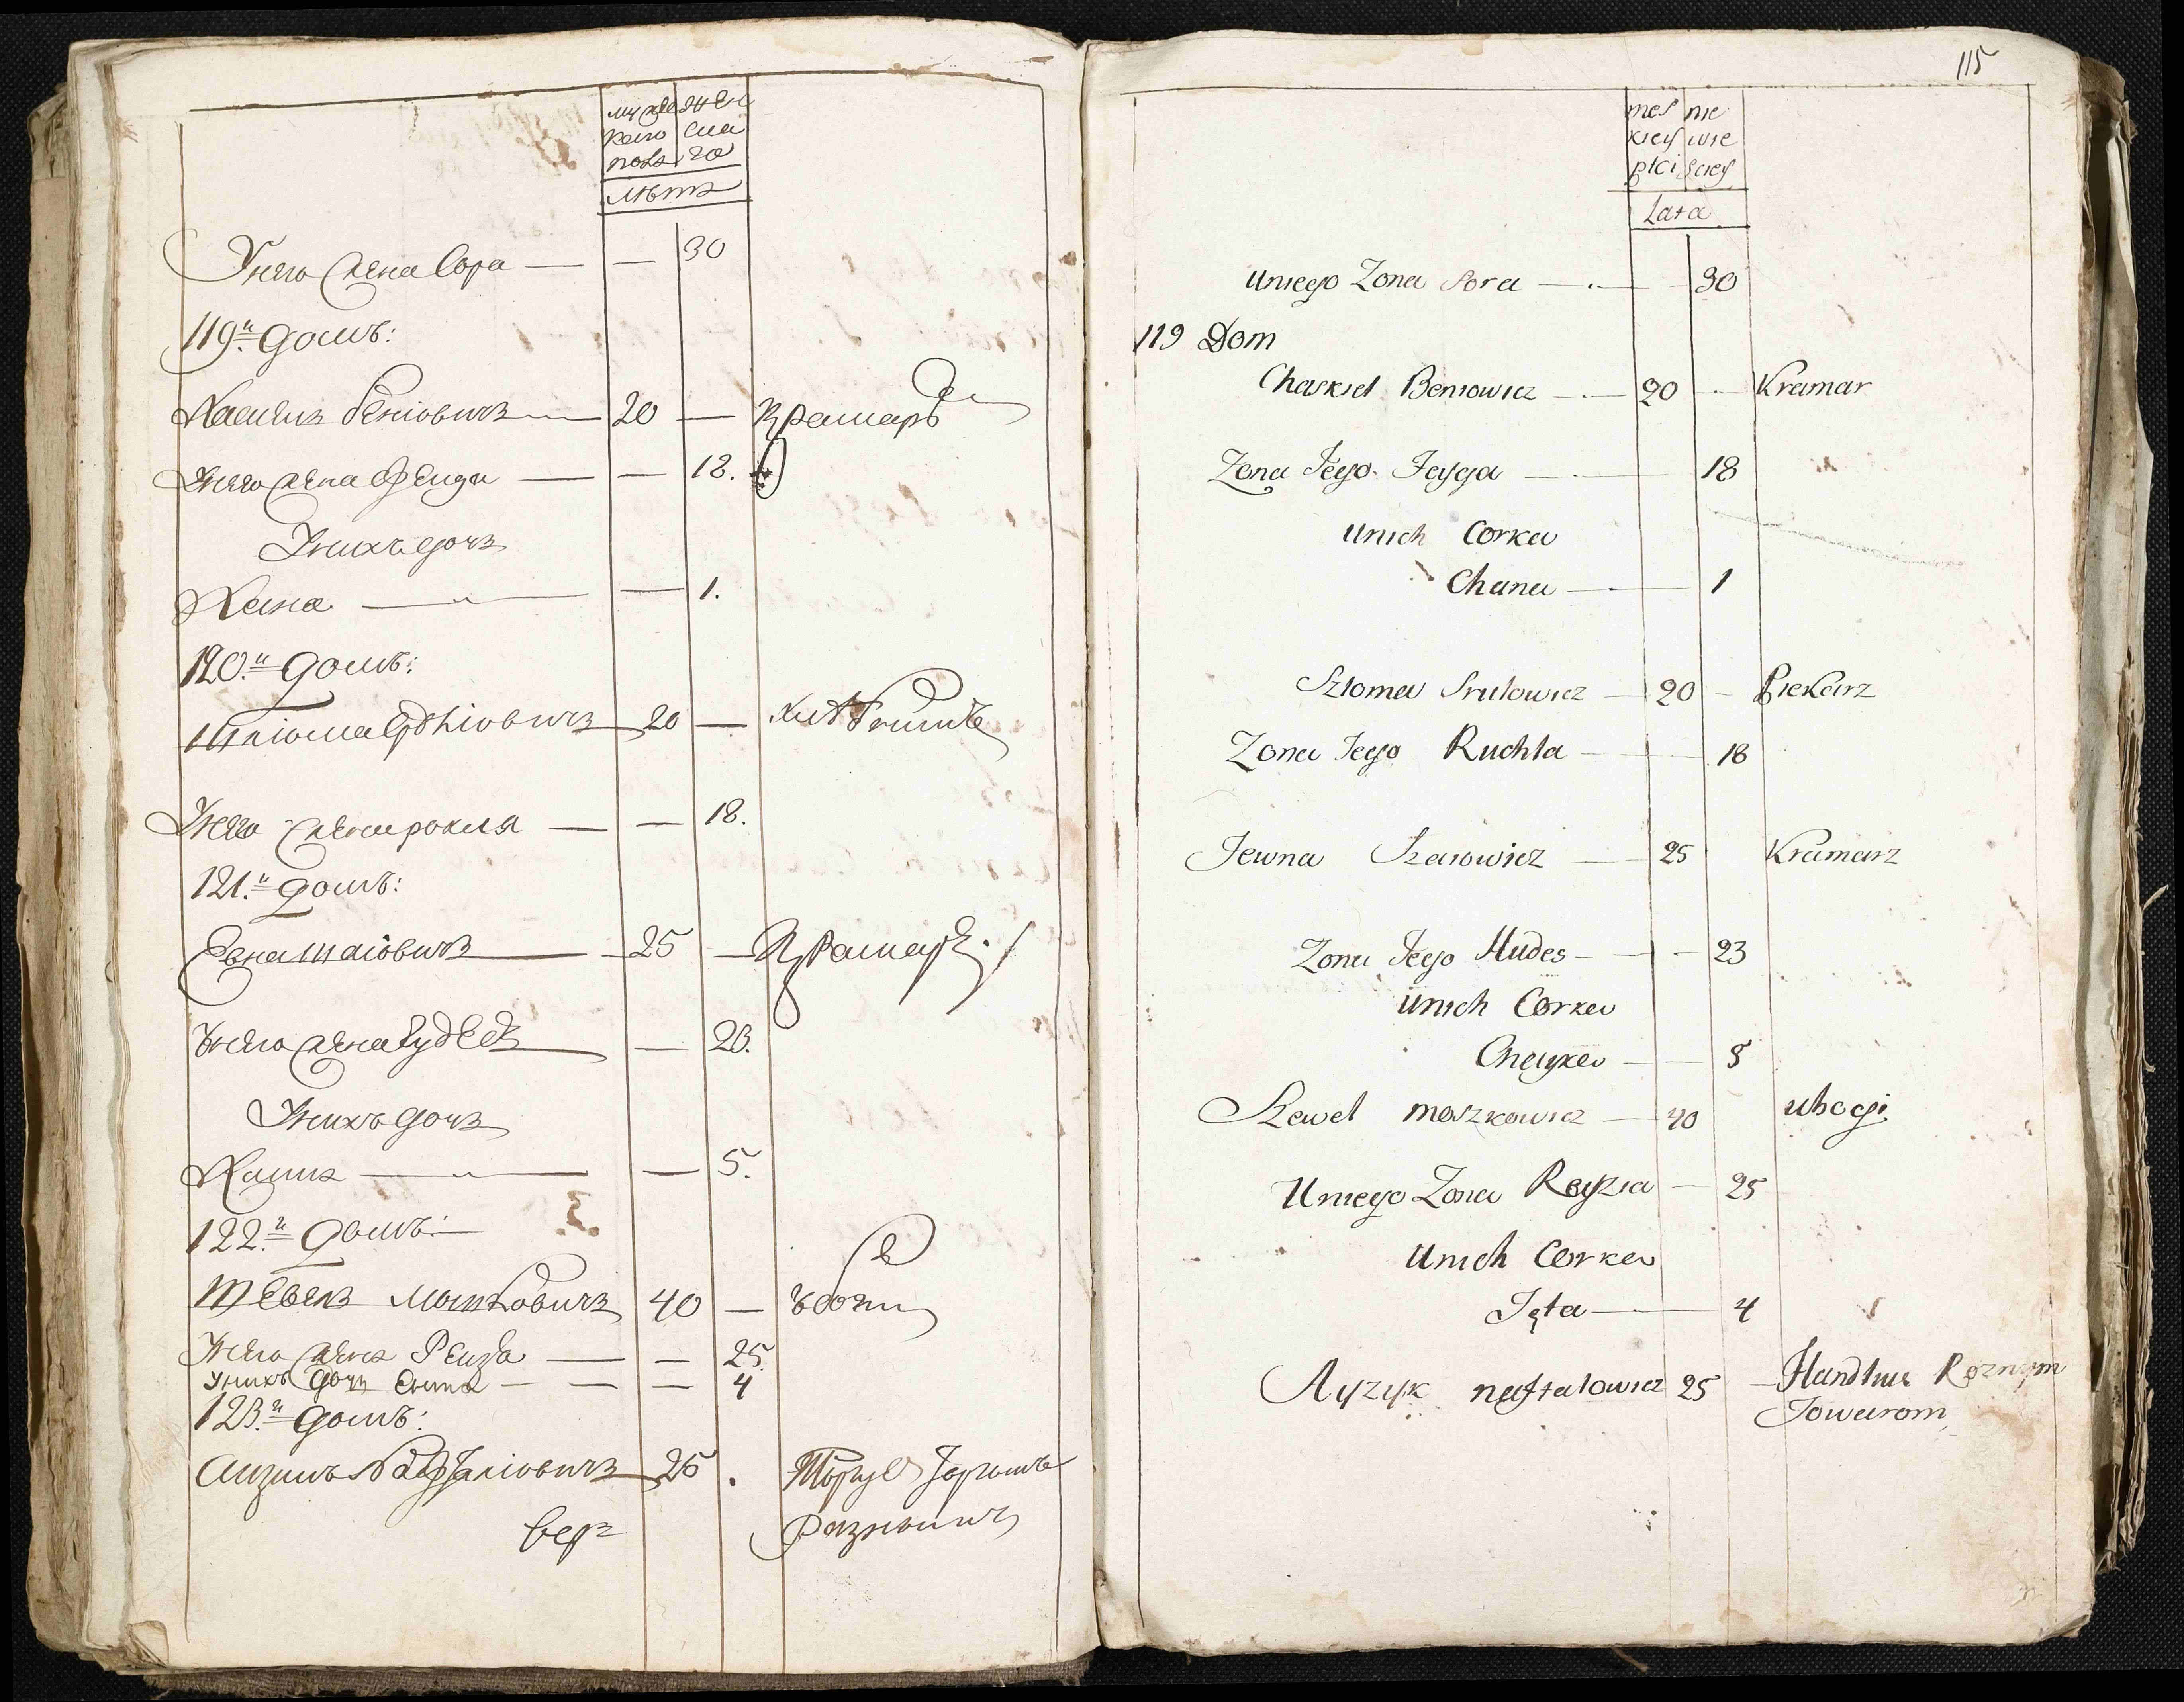 муже жен
кого ска
полъ го
лѣтъ
У него жена Сора — — 30
119й домъ:
Хаскель Беніовичъ — 20 — Крамарь
У него жена Фейга — — 18.
У нихъ дочь
Хана — — 1.
120.й домъ:
Шліома Срулiовичъ 20 —
У него жена рохля — — 18.
121.й домъ:
Евна Шаіовичъ — 25 — Крамарь.
У него жена Гудес — 23.
У нихъ дочь
— 5.
122.й домъ:
Шевель Мошковичъ 40 — убоги
У него жена Рейза — — 25.
У нихъ дочь — — 4
123.й домъ:
Айзикъ Нафталіовичъ 25 . Торгуе
разнымъ
115
męs nie
kiey wie
płci sciey
Lata
U niego Zona Sora — 30
119 Dom
Chaskiel Beniowicz — 20 — Kramar
Zona Jego Feyga — 18
U nich Corka
Chana — 1
Szloma Srulowicz — 20 — Piekarz
Zona Jego Ruchla — 18
Jewna Szaiowicz — 25 Kramarz
Zona Jego Hudes — 23
U nich Corka
Chayka — 5
Szewel Moszkowicz — 40 ubogi
U niego Zona Reyzia — 25
U nich Corka
Jęta — 4
Ayzyk Naftalowicz 25 — Handluie Roznym
Towarom